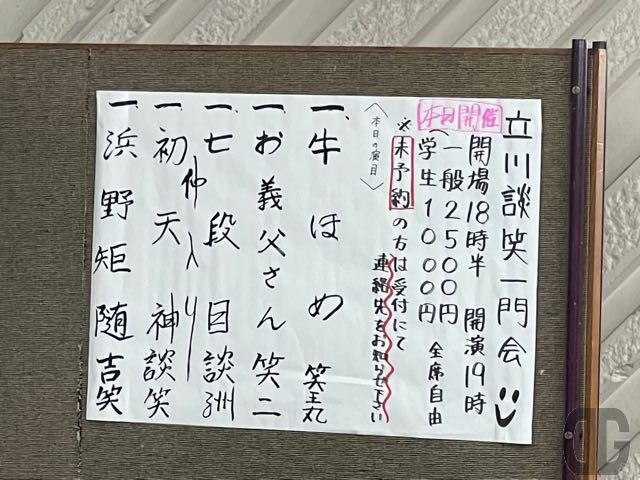 立川談笑一門会
開場18時半 開演19時
本日開催
一般2500円
学生1000円
全席自由
※未予約の方は受付にて
連絡先をお知らせ下さい
〈本日の演目〉
一、牛ほめ 笑王丸
一、お義父さん 笑二
一、七段目 談洲
仲入り
一、初天神 談笑
一、浜野矩随 吉笑